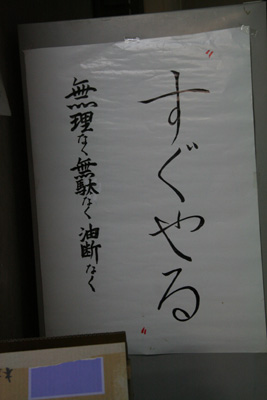 すぐやる
無理なく無駄なく油断なく